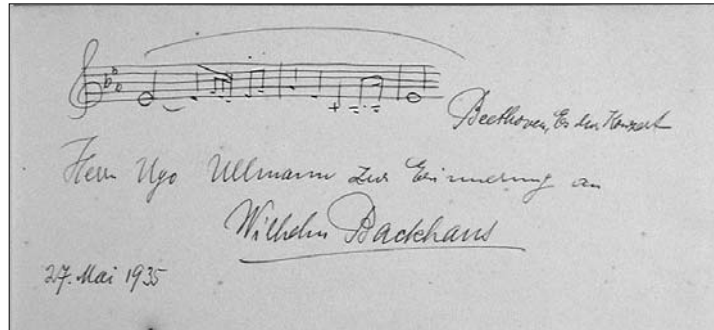 Beethoven, Es dur Konzert
Herrn Ugo Ullmann zur Erinnerung an
Wilhelm Backhaus
27. Mai 1935